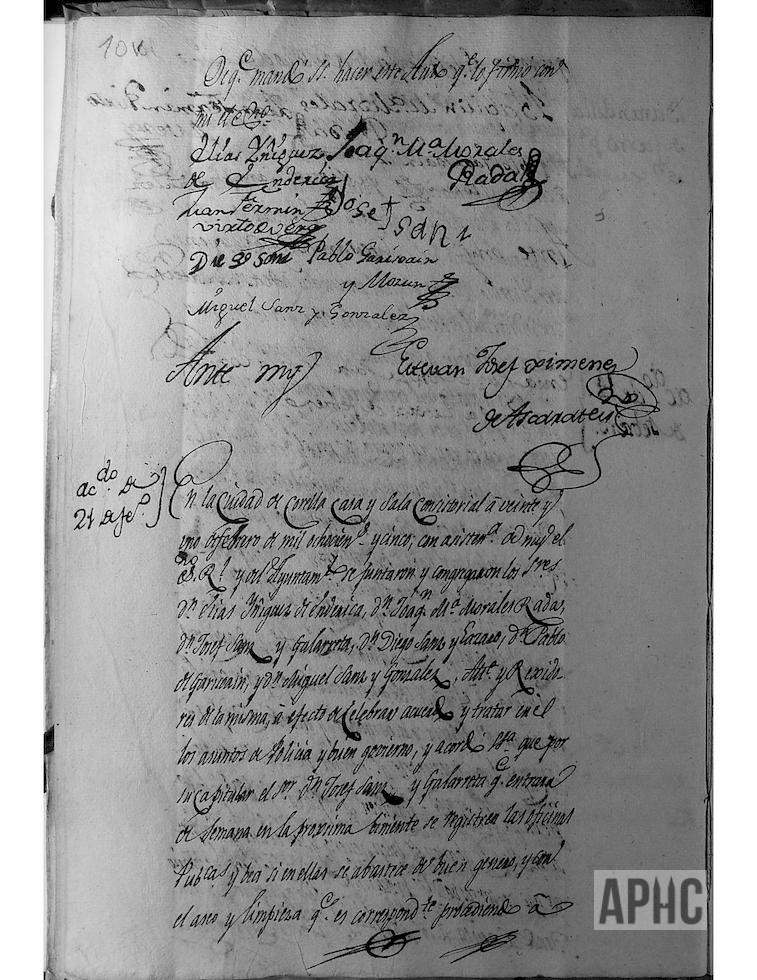 101
De q.e mandó SS. hacer este Auto q.e lo firmó con
mi el Ess.no
Elías Yñiguez Joaq.n M.a Morales
de Enderica Rada
Juan Fermin Josef Sanz
Virto de Vera
Diego Sanz Pablo Garisoain
y Morun
Miguel Sanz y Gonzalez
Ante my
Estevan Josef Ximenez
de Ascarate
ac.do de
21 de fe.o
En la Ciudad de Corella Casa y Sala Consistorial â veinte y
uno de febrero de mil ochocien.s y cinco, con asisten.a de my el
Ess.no R.l y del Ayuntam.to se juntaron y congregaron los S.res
d.n Elias Yñiguez de Enderica, d.n Joaq.n M.a Morales Rada,
d.n Josef Sanz y Galarreta, d.n Diego Sanz y Lazaro, d.n Pablo
de Garisoain, y d.n Miguel Sanz y Gonzalez, Alt.e y Rexido
res de la misma, â efecto de Celebrar acuerdo y tratar en él
los asuntos de Policia y buen govierno, y acordó SS.a que por
su capitular el s.or d.n Josef Sanz y Galarreta q.e entrara
de semana en la proxima biniente se registren las oficinas
Pub.cas y vea si en ellas se abastece de buen genero, y con
el aseo y limpieza q.e es correspond.te procediendo â
APHC